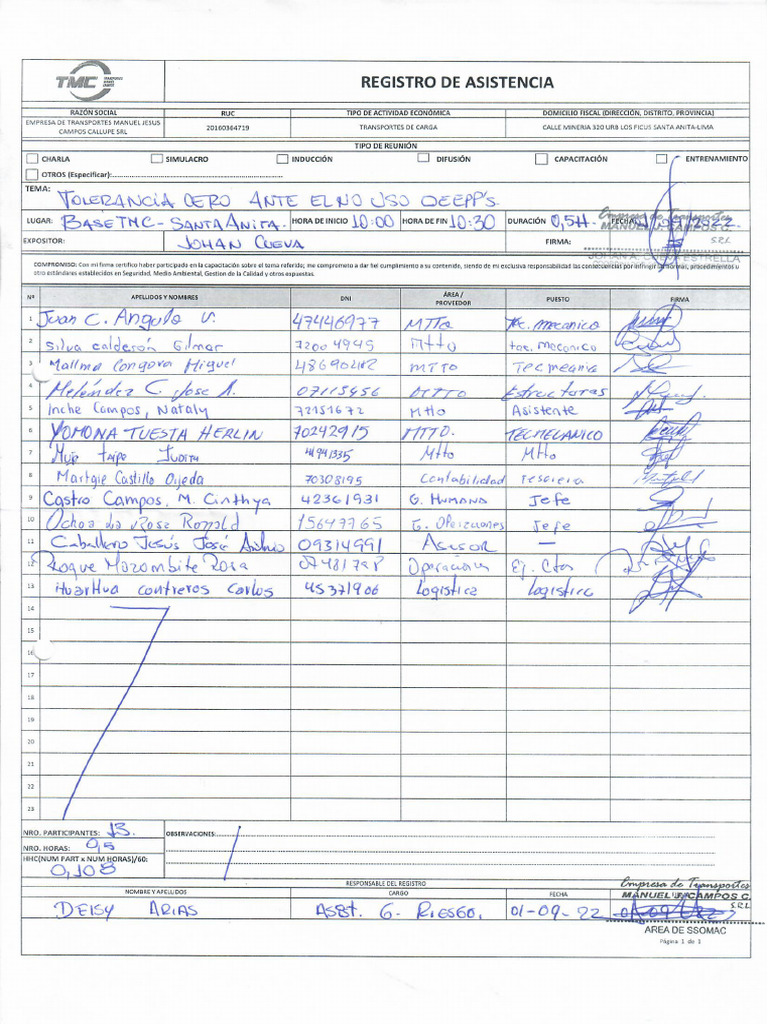 TMC TRANSPORTES MANUEL JESUS CAMPOS
REGISTRO DE ASISTENCIA
RAZÓN SOCIAL RUC TIPO DE ACTIVIDAD ECONÓMICA DOMICILIO FISCAL (DIRECCIÓN, DISTRITO, PROVINCIA)
EMPRESA DE TRANSPORTES MANUEL JESUS CAMPOS CALLUPE SRL 20160364719 TRANSPORTES DE CARGA CALLE MINERIA 320 URB LOS FICUS SANTA ANITA-LIMA
TIPO DE REUNIÓN
CHARLA SIMULACRO INDUCCIÓN DIFUSIÓN CAPACITACIÓN ENTRENAMIENTO
OTROS (Especificar):
TEMA: TOLERANCIA CERO ANTE EL NO USO DE EPP's.
LUGAR: BASE TMC - SANTA ANITA. HORA DE INICIO 10:00 HORA DE FIN 10:30 DURACIÓN 0,5H FECHA:
Empresa de Transportes
MANUEL J. CAMPOS C.
S.R.L
EXPOSITOR: JOHAN CUEVA FIRMA:
JOHAN A. CUEVA ESTRELLA
COMPROMISO: Con mi firma certifico haber participado en la capacitación sobre el tema referido; me comprometo a dar fiel cumplimiento a su contenido, siendo de mi exclusiva responsabilidad las consecuencias por infringir las normas, procedimientos u
otro estándares establecidos en Seguridad, Medio Ambiental, Gestion de la Calidad y otros expuestas.
Nº APELLIDOS Y NOMBRES DNI ÁREA / PROVEEDOR PUESTO FIRMA
1 Juan C. Angulo V. 47446977 MTTO tec. mecanico
2 Silva calderón Gilmar 72004949 Mtto tec. Mecanico
3 Mallma Miguel MTTO
4 Meléndez C. Jose A. 07113456 MTTO Estructuras
5 Inche Campos, Nataly 72151672 Mtto Asistente
6 YOMONA TUESTA HERLIN 70242915 MTTO. TECMECANICO
7 Taipe Judith 41941335 Mtto Mtto
8 Castillo Ojeda 70308195 Contabilidad Tesorera
9 Castro Campos. M. Cinthya 42361931 G. Humana Jefe
10 Ochoa Ronald 15647765 G. Operaciones Jefe
11 Caballero Jesús José Antonio 09314991 ASESOR —
12 Roque Mozombite Rosa Operaciones Ej. Ctas
13 Huarhua contreros Carlos 45371906 Logistica Logistica
14
15
16
17
18
19
20
21
22
23
NRO. PARTICIPANTES: 13. OBSERVACIONES:
NRO. HORAS: 0,5
HHC(NUM PART x NUM HORAS)/60:
0,108
RESPONSABLE DEL REGISTRO
NOMBRE Y APELLIDOS CARGO FECHA
DEISY ARIAS ASST. G. RIESGO. 01-09-22
Empresa de Transportes
MANUEL J. CAMPOS C.
S.R.L
AREA DE SSOMAC
Página 1 de 1